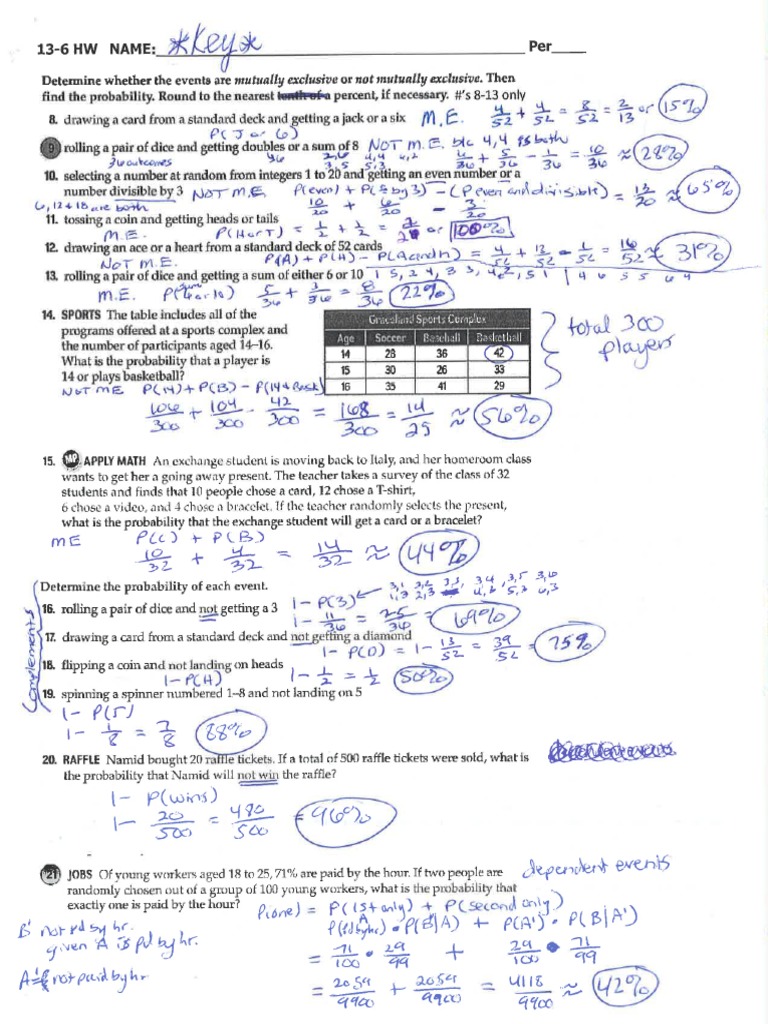 13-6 HW NAME: *Key* Per
Determine whether the events are mutually exclusive or not mutually exclusive. Then
find the probability. Round to the nearest tenth of a percent, if necessary. #'s 8-13 only
8. drawing a card from a standard deck and getting a jack or a six M.E. 4/52 + 4/52 = 8/52 = 2/13 or 15%
P(J or 6)
9 rolling a pair of dice and getting doubles or a sum of 8 NOT M.E. b/c 4,4 is both
36 outcomes 6/36 + 5/36 - 1/36 = 10/36 ≈ 28%
10. selecting a number at random from integers 1 to 20 and getting an even number or a
number divisible by 3 NOT M.E P(even) + P(÷ by 3) - (P even and divisible)
6, 12 + 18 are both 10/20 + 6/20 - 3/20 = 13/20 ≈ 65%
11. tossing a coin and getting heads or tails
M.E. P(H or T) = 1/2 + 1/2 = or 100%
12. drawing an ace or a heart from a standard deck of 52 cards
NOT M.E. P(A) + P(H) - P(A and H) = 4/52 + 13/52 - 1/52 = 16/52 ≈ 31%
13. rolling a pair of dice and getting a sum of either 6 or 10 15, 24, 33, 42, 51 | 46 55 64
M.E. P(sum 6 or 10) 5/36 + 3/36 = 8/36 22%
14. SPORTS The table includes all of the
programs offered at a sports complex and
the number of participants aged 14–16.
What is the probability that a player is
14 or plays basketball?
Graceland Sports Complex
Age Soccer Baseball Basketball
14 28 36 42
15 30 26 33
16 35 41 29
total 300
players
NOT ME P(14) + P(B) - P(14 + Bask)
106/300 + 104/300 - 42/300 = 168/300 = 14/25 ≈ 56%
15. MP APPLY MATH An exchange student is moving back to Italy, and her homeroom class
wants to get her a going away present. The teacher takes a survey of the class of 32
students and finds that 10 people chose a card, 12 chose a T-shirt,
6 chose a video, and 4 chose a bracelet. If the teacher randomly selects the present,
what is the probability that the exchange student will get a card or a bracelet?
ME P(C) + P(B)
10/32 + 4/32 = 14/32 ≈ 44%
Complements
Determine the probability of each event.
3,1 3,2 3,3 3,4 3,5 3,6
1,3 2,3 4,3 5,3 6,3
16. rolling a pair of dice and not getting a 3 1 - P(3)
1 - 11/36 = 25/36 = 69%
17. drawing a card from a standard deck and not getting a diamond
1 - P(D) = 1 - 13/52 = 39/52 = 75%
18. flipping a coin and not landing on heads
1 - P(H) 1 - 1/2 = 1/2 50%
19. spinning a spinner numbered 1–8 and not landing on 5
1 - P(5)
1 - 1/8 = 7/8 88%
20. RAFFLE Namid bought 20 raffle tickets. If a total of 500 raffle tickets were sold, what is
the probability that Namid will not win the raffle?
1 - P(wins)
1 - 20/500 = 480/500 = 96%
21 JOBS Of young workers aged 18 to 25, 71% are paid by the hour. If two people are
randomly chosen out of a group of 100 young workers, what is the probability that
exactly one is paid by the hour?
dependent events
P(one) = P(1st only) + P(second only)
P(pd by hr) • P(B'|A) + P(A') • P(B|A')
B' not pd by hr.
given A is pd by hr.
A' = not paid by hr
= 71/100 • 29/99 + 29/100 • 71/99
= 2059/9900 + 2059/9900 = 4118/9900 ≈ 42%